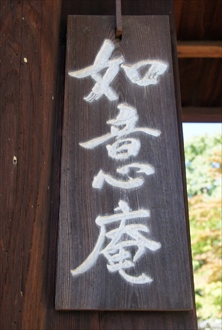 如意庵